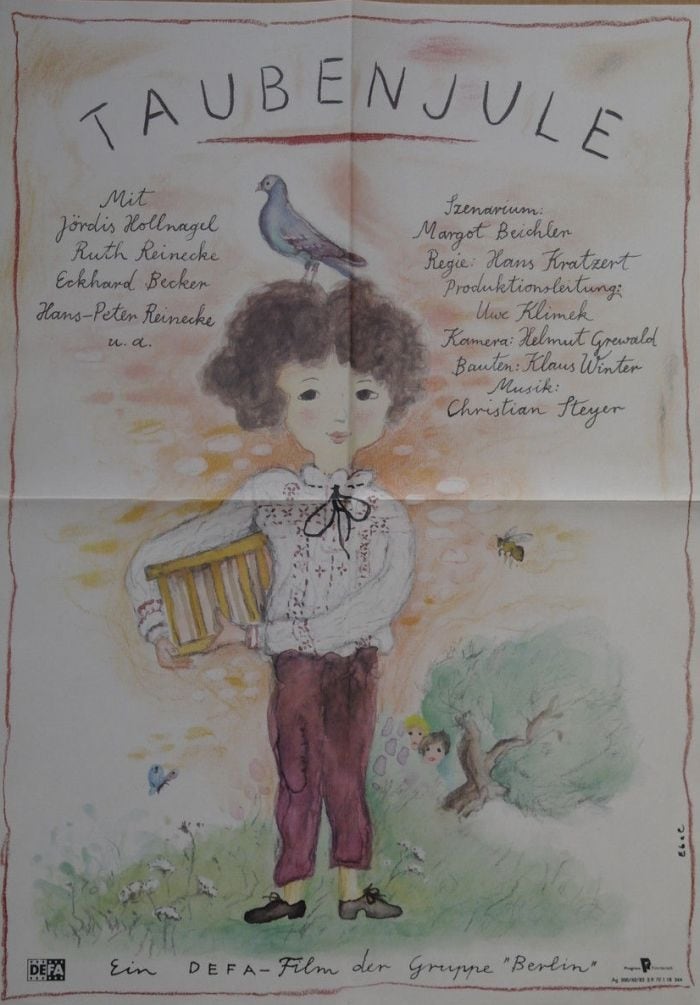 TAUBENJULE
Mit
Jördis Hollnagel
Ruth Reinecke
Eckhard Becker
Hans-Peter Reinecke
u.a.
Szenarium:
Margot Beichler
Regie: Hans Kratzert
Produktionsleitung:
Uwe Klimek
Kamera: Helmut Grewald
Bauten: Klaus Winter
Musik:
Christian Steyer
DEFA
Ein DEFA-Film der Gruppe "Berlin"
Progress